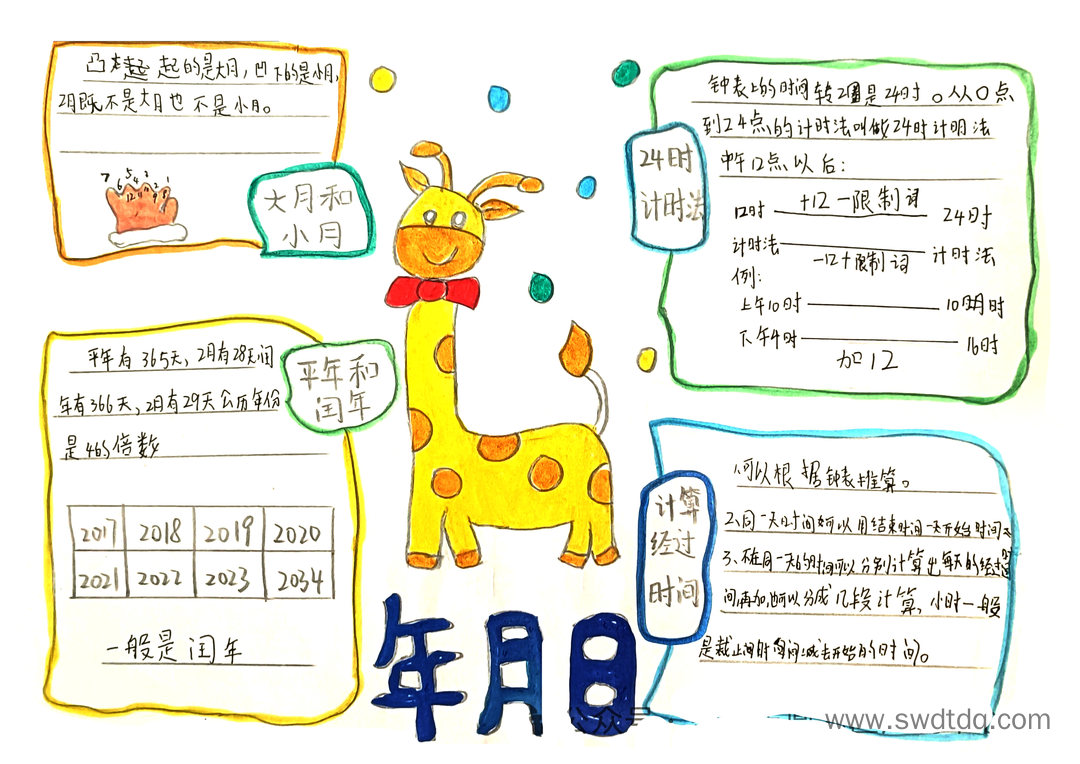 凸起的是大月，凹下的是小月，
2月既不是大月也不是小月。
7 6 5 4 3 2 1
12 11 10 9 8
大月和
小月
平年有365天，2月有28天闰
年有366天，2月有29天公历年份
是4的倍数
平年和
闰年
2017 2018 2019 2020
2021 2022 2023 2034
一般是闰年
年月日
24时
计时法
钟表上的时间转2圈是24时。从0点
到24点的计时法叫做24时计明法
中午12点以后：
12时 +12-限制词 24时
计时法 -12+限制词 计时法
例：
上午10时 10时
下午4时 16时
加12
计算
经过
时间
1.可以根据钟表推算。
2、同一天时间可以用结束时间-开始时间
3、不在同一天的时间可以分别计算出每天的经过
间，再加，也可以分成几段计算，小时一般
是截止间时间减去开始的时间。
www.swdtdq.com